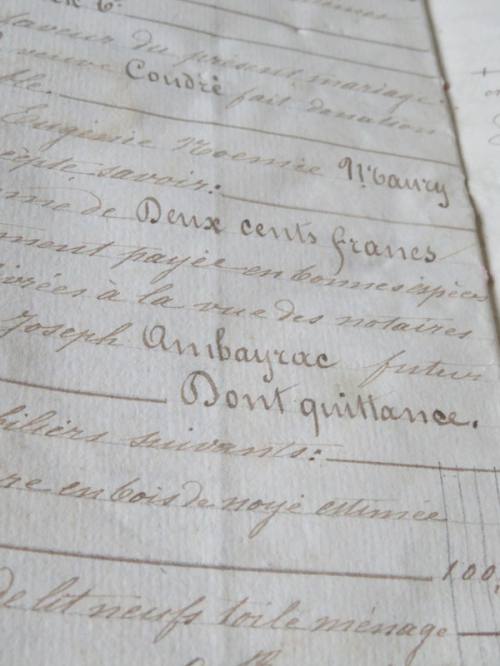 faveur du présent mariage.
veuve Coudré fait donation
Eugénie Noemie
savoir:
de Deux cents francs
ment payée en bonnes espèces
à la vue des notaires
Joseph Ambayrac futur
Dont quittance.
biliers suivants:
en bois de noyé estimée
100
de lit neufs toile ménage